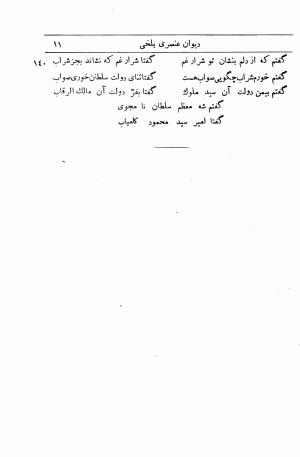 دیوان عنصری بلخی ۱۱
گفتم که از دلم بنشان تو شرار غم گفتا شرار غم که نشاند بجز شراب ۱۴۰
گفتم خورم شراب چگویی صواب هست گفتا ثنای دولت سلطان خوری صواب
گفتم بیمن دولت آن سید ملوك گفتا بفرّ دولت آن مالك الرقاب
گفتم شه معظم سلطان نامجوی
گفتا امیر سید محمود کامیاب